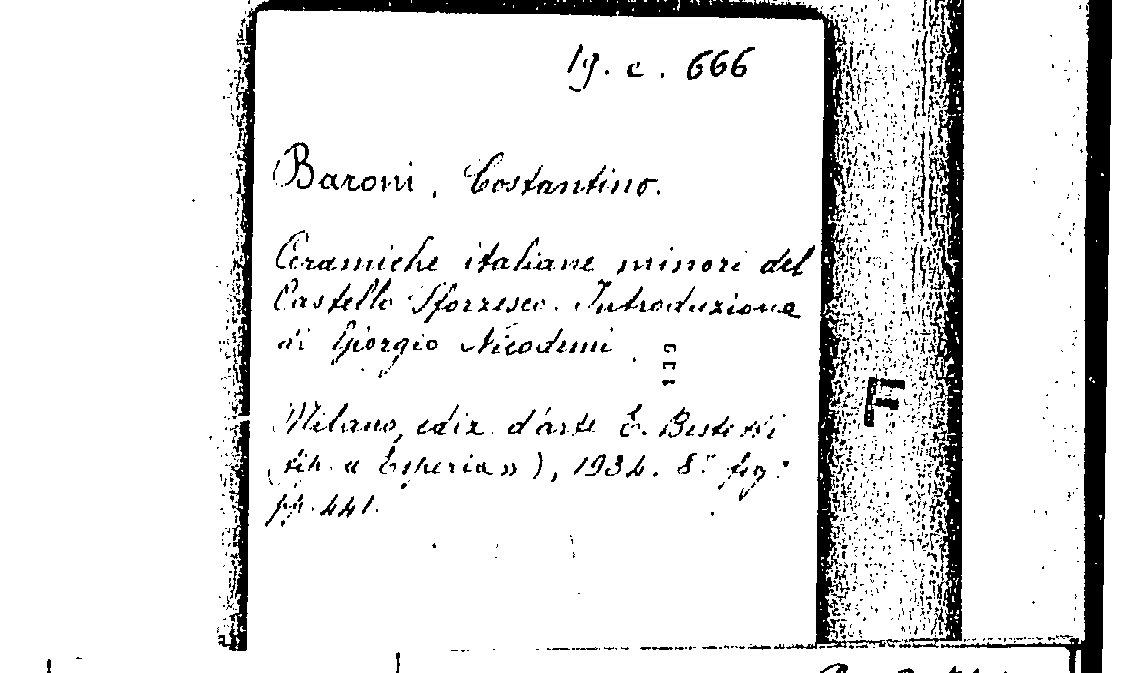 19. c. 666
Baroni, Costantino.
Ceramiche italiane minori del
Castello Sforzesco. Introduzione
di Giorgio Nicodemi.
Milano, ediz. d'arte E. Bestetti
(tip. « Esperia »), 1934. 8° fig°
pp. 441.
F